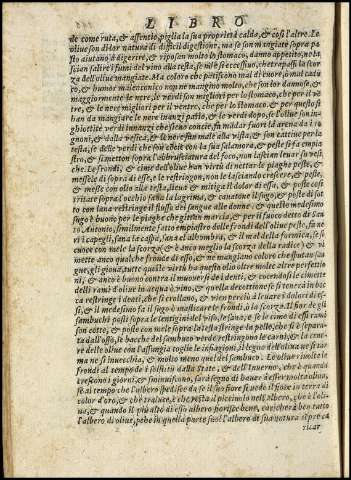 LIBRO
le come ruta, & assentio, piglia la sua proprietà calda, & così l'altre. Le
oliue son di lor natura di difficil digestione, ma se son mangiate sopra pa
sto aiutano à digerire, & riposen molto lo stomaco, danno appetito, nõ la
sciano salire i fumi del vino alla testa, se nõ è
zza dell'oliue mangiate. Ma coloro che patiscono mal di cuore, ò mal cadu
co, & humor malenconico non ne mangino molte, che son lor dannose, &
maggiormente le nere, le verdi son migliori per lo stomaco, che per il vẽ
tre, & le nere migliori per il ventre, che per lo stomaco, & per questo si
han da mangiare le nere inanzi pasto, & le verdi dopo, se l'oliue son in
ghiottite verdi innanzi che sieno concie, fa mãdar fuore la arena da i ro
gnoni, & dalla vesica, & le nere fan male alla vista, & son cattiue per la
testa, se delle verdi che son concie con la sua salamora, & peste si fa empia
stro, & si metton sopra l'abbrusciatura del foco, non lascian leuar su vesi
che. Le frondi, & cime dell'oliue han virtù di nettar le piaghe peste, &
messele di sopra di esse, & le restringon, non le lasciando crescere, & peste,
& meste con olio alla testa, lieua & mitiga il dolor di essa, & poste così
tritate sopra l'occhio sana il lagrimar, & cauatone il sugo, & di sotto
to con lana restringe il flusso del sangue alle donne; & quello medesimo
sugo è buono per le piaghe che gittan marcia, & per il fuoco detto di San
to Antonio, similmente fatto empiastro delle frondi dell'oliue peste, fa ne
ri i capegli, sana la tigna, sana il alhombra, & il mal della formica, se si
cuoce con mele la scorza (& è anco meglio la scorza della radice) & vi
mette anco qualche fronde di essa, & ne mangiano coloro che sputan san
gue, gli gioua, tutte quelle virtù ha questo olio oltre molte altre perfettio
ni, & anco è buono contra il muouersi de' denti, & cocendosi le cimette
delli rami d'oliue in acqua ò vino, & quella decottione, se si tenerà in boc
ca restringe i denti, che si crollano, & vien perciò à leuare i dolori di es
si, & il medesimo fa il sugo ò masticare le frondi, ò la scorza. Il fior de gli
sambuchi posti sopra le lentigini del viso, le sana, & se le cime di essi rami
son cotte, & poste con mele sopra la testa stringe la pelle, che si è separa
ta dall'osso, le bacche del sambuco verdi restringono le carni, & la cene
re delle oliue con l'assungia toglie le inflagioni, il legno dell'oliua ne si tar
ma ne si inuecchia, & molto meno quel del sambuco. Le oliue riuolte le
frondi al tempo de i solstitii dalla State, & dell'Inuerno, che è quando
crescono i giorni, & sminuiscono, sarà segno di hauer da esser molta oliua,
se al tempo che l'albero perdesse da se il suo fiore, si uede il fiore in terra di
color d'oro, & che traluce, & che resta il picciuolo nell'albero, che è l'oli
ua, & quando il più alto di esso albero fiorisce bene, caricherà ben tutto
l'albero di oliue, pche in quella parte suol l'albero di sua natura esser ca
ricar